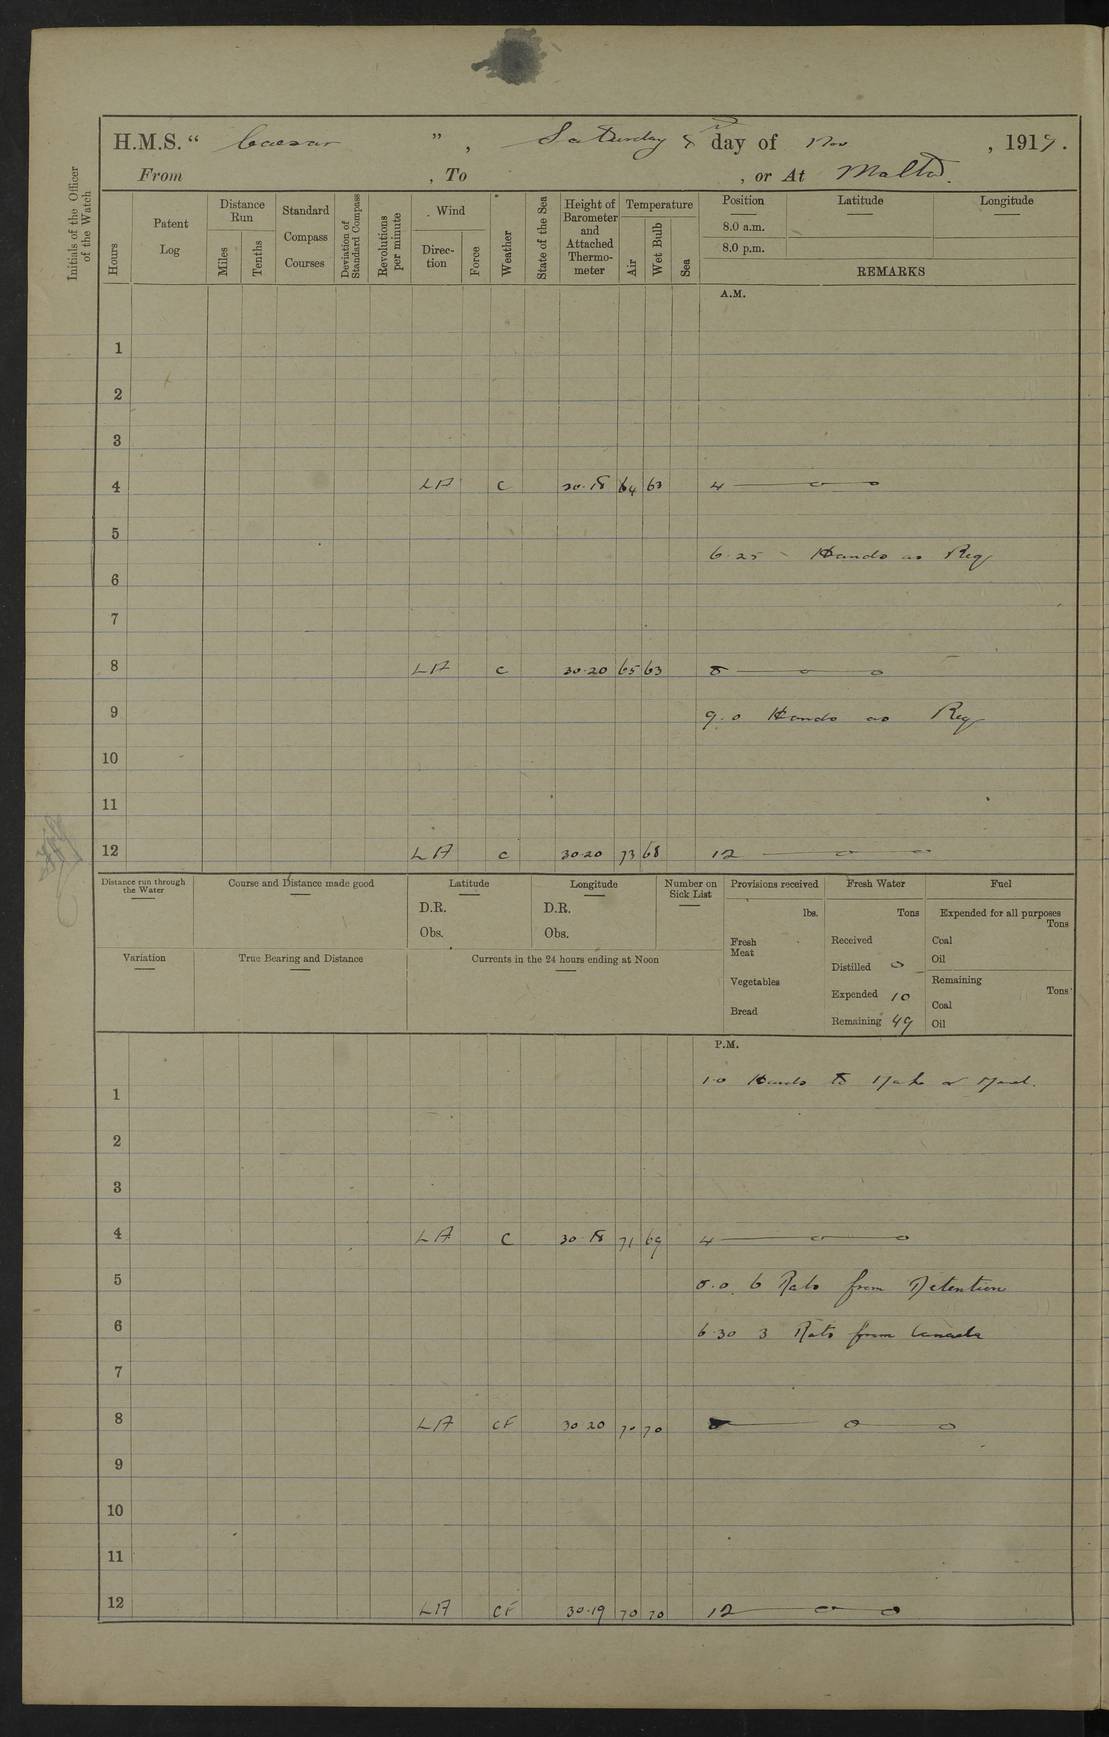 H.M.S. “ Caesar ” , Saturday 8 day of Nov , 1917.
From , To , or At Malta.
Initials of the Officer of the Watch
Hours
Patent Log
Distance Run
Miles
Tenths
Standard Compass Courses
Deviation of Standard Compass
Revolutions per minute
Wind
Direction
Force
Weather
State of the Sea
Height of Barometer and Attached Thermometer
Temperature
Air
Wet Bulb
Sea
Position Latitude Longitude
8.0 a.m.
8.0 p.m.
REMARKS
A.M.
1
2
3
4 LA C 30.18 64 63 4 — o — o
5
6.25 - Hands as Req
6
7
8 LA C 30.20 65 63 8 — o — o
9 9.0 Hands as Req
10
11
12 LA C 30.20 73 68 12 — o — o
Distance run through the Water
Course and Distance made good
Latitude
D.R.
Obs.
Longitude
D.R.
Obs.
Number on Sick List
Provisions received
lbs.
Fresh Meat
Vegetables
Bread
Fresh Water
Tons
Received
Distilled 0
Expended 10
Remaining 49
Fuel
Expended for all purposes
Tons
Coal
Oil
Remaining
Tons
Coal
Oil
Variation
True Bearing and Distance
Currents in the 24 hours ending at Noon
P.M.
1.0 Hands to Make & Mend.
1
2
3
4 LA C 30.18 71 69 4 — o — o
5 5.0. 6 Rats from Detention
6 6.30 3 Rats from Canada
7
8 LA CF 30.20 70 70 8 — o — o
9
10
11
12 LA CF 30.19 70 70 12 — o — o